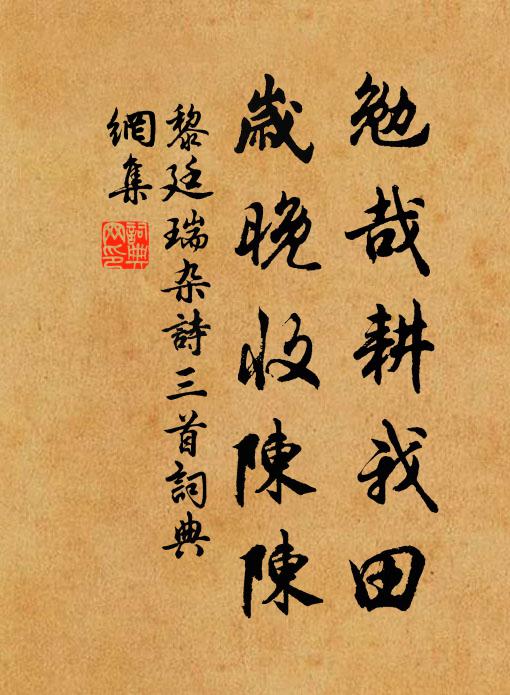 勉哉耕我田
歲晚收陳陳
黎廷瑞杂詩三首詞典
網集
詞典
网印